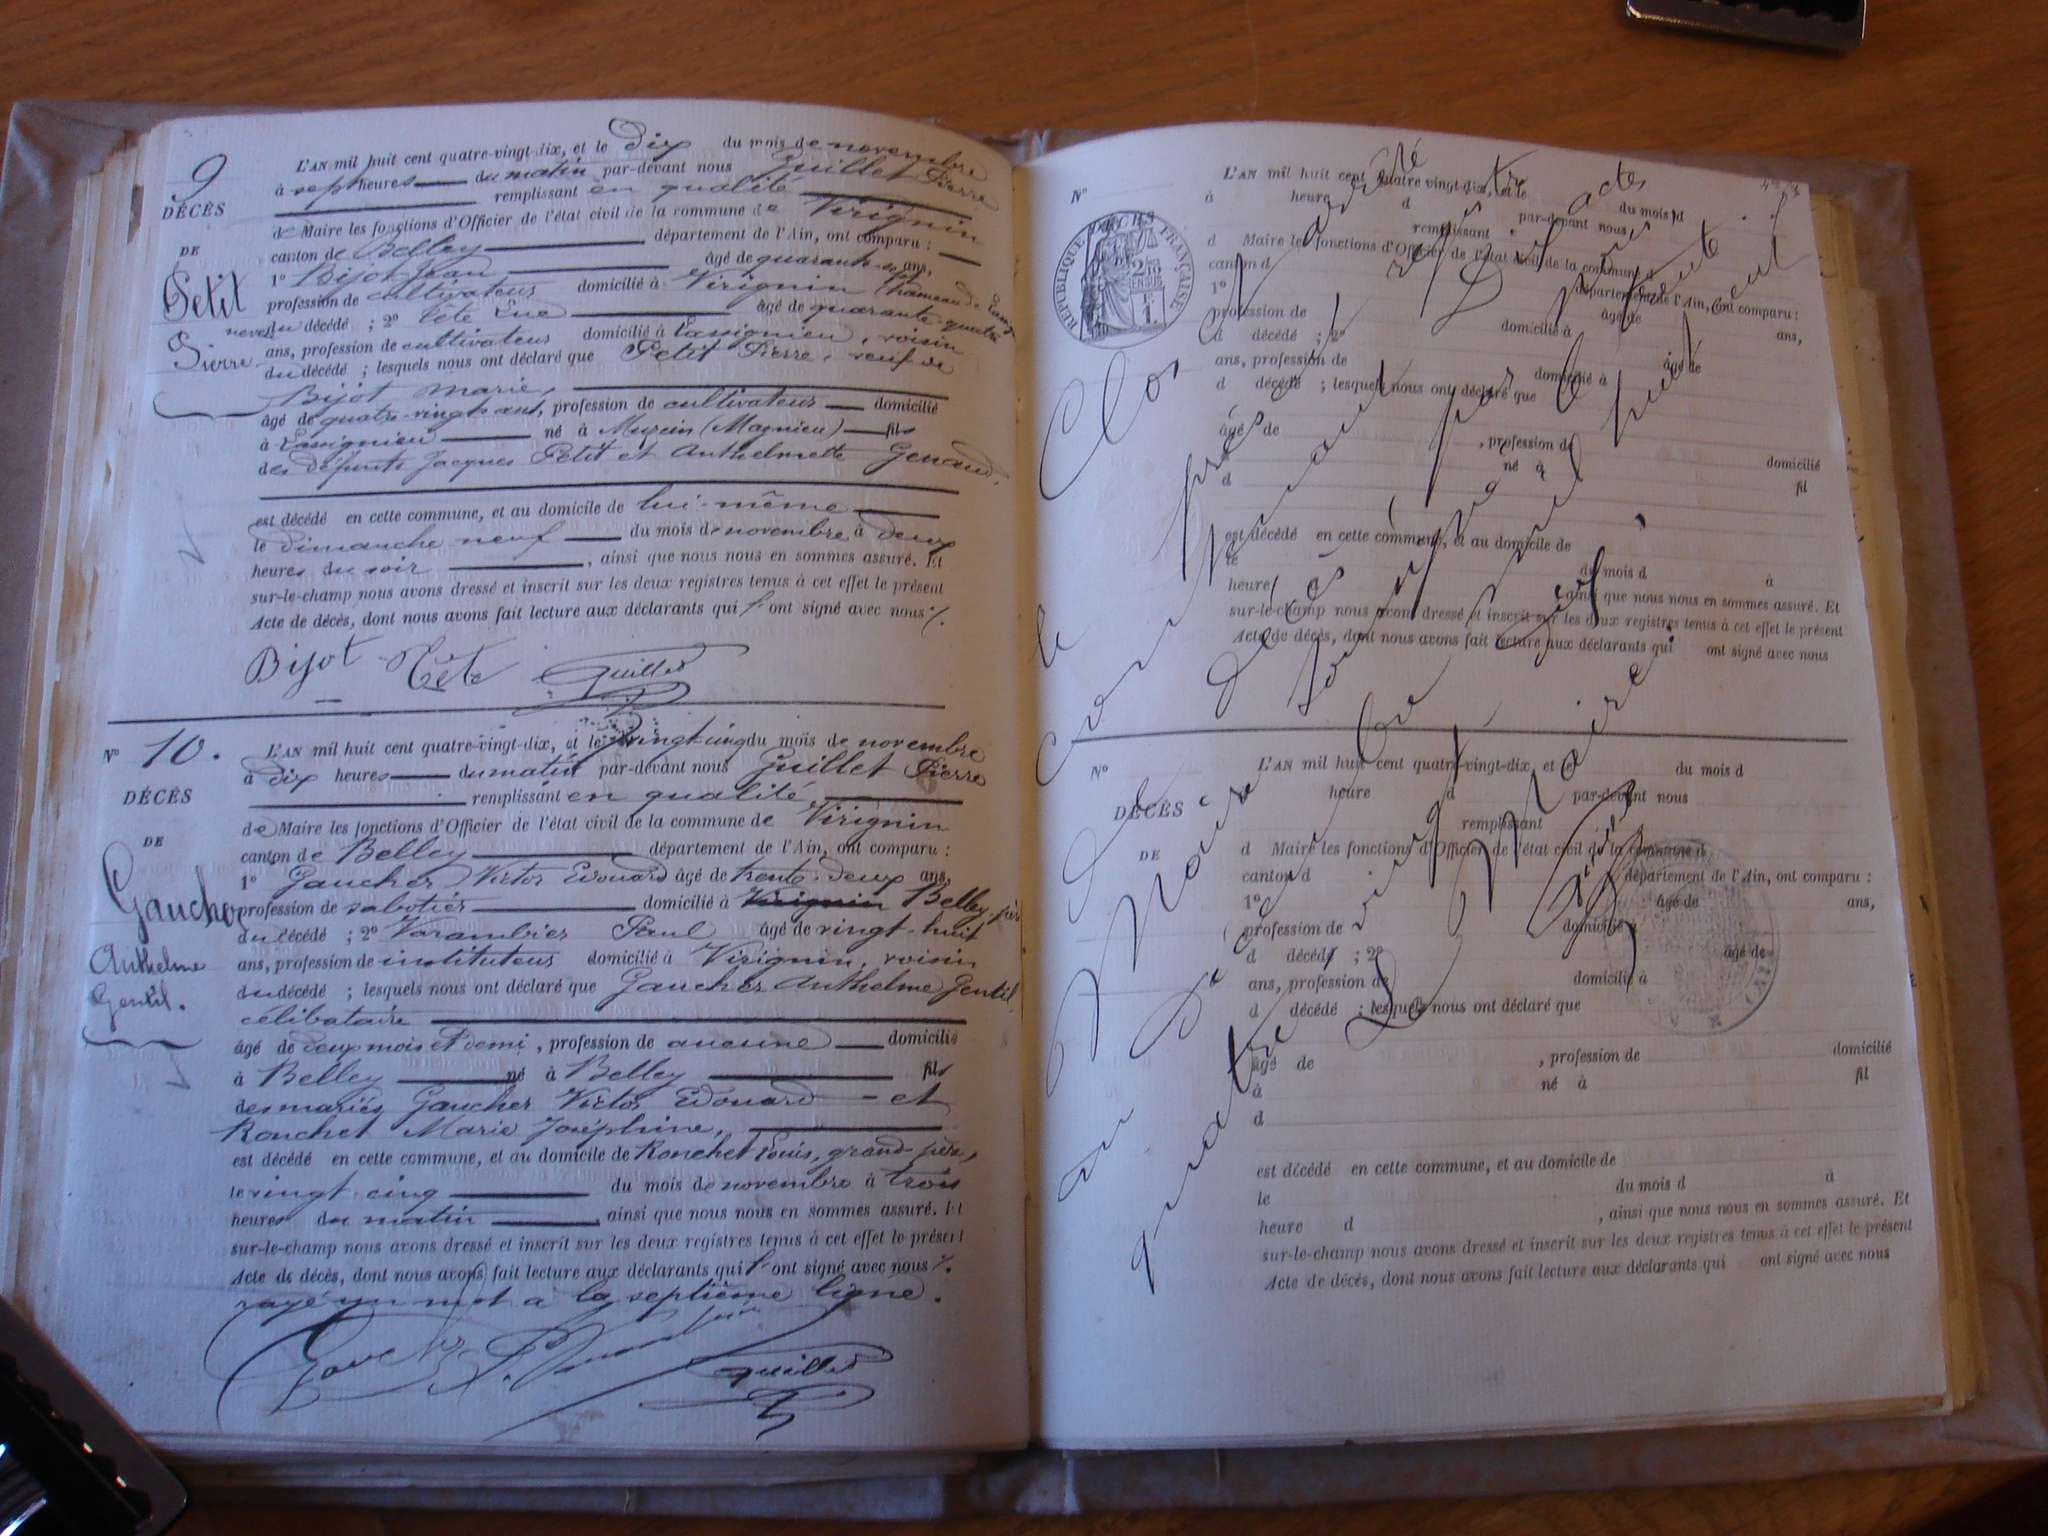 9
DÉCÈS
DE
Petit
Pierre
L'AN mil huit cent quatre-vingt-dix, et le dix du mois de novembre
à sept heures du matin par-devant nous Guillet Pierre
remplissant en qualité
de Maire les fonctions d'Officier de l'état civil de la commune de Virignin
canton de Belley département de l'Ain, ont comparu :
1° Bijot Jean âgé de quarante- ans,
profession de cultivateur domicilié à Virignin (hameau de
neveu du décédé ; 2° Tête âgé de quarante-quatre
ans, profession de cultivateur domicilié à Lassignieu, voisin
du décédé ; lesquels nous ont déclaré que Petit Pierre, veuf de
Bijot Marie,
âgé de quatre-vingts ans, profession de cultivateur domicilié
à Lassignieu né à Muzin (Magnieu) fils
des défunts Jacques Petit et Anthelmette Genand,
est décédé en cette commune, et au domicile de lui-même
le dimanche neuf du mois de novembre à deux
heures du soir, ainsi que nous nous en sommes assuré. Et
sur-le-champ nous avons dressé et inscrit sur les deux registres tenus à cet effet le présent
Acte de décès, dont nous avons fait lecture aux déclarants qui l'ont signé avec nous ./.
Bijot Tête Guillet
N° 10.
DÉCÈS
DE
Gaucher
Anthelme
Gentil.
L'AN mil huit cent quatre-vingt-dix, et le vingt-cinq du mois de novembre
à dix heures du matin par-devant nous Guillet Pierre
remplissant en qualité
de Maire les fonctions d'Officier de l'état civil de la commune de Virignin
canton de Belley département de l'Ain, ont comparu :
1° Gaucher Victor Edouard âgé de trente-deux ans,
profession de sabotier domicilié à Virignin Belley, père
du décédé ; 2° Varambier Paul âgé de vingt-huit
ans, profession de instituteur domicilié à Virignin, voisin
du décédé ; lesquels nous ont déclaré que Gaucher Anthelme Gentil
célibataire
âgé de deux mois et demi, profession de aucune domicilié
à Belley né à Belley fils
des mariés Gaucher Victor Edouard - et
Ronchet Marie Joséphine,
est décédé en cette commune, et au domicile de Ronchet Louis, grand-père,
le vingt-cinq du mois de novembre à trois
heures du matin, ainsi que nous nous en sommes assuré. Et
sur-le-champ nous avons dressé et inscrit sur les deux registres tenus à cet effet le présent
Acte de décès, dont nous avons fait lecture aux déclarants qui l'ont signé avec nous ./.
rayé un mot à la septième ligne.
Gaucher Guillet
N°
RÉPUBLIQUE FRANÇAISE
L'AN mil huit cent quatre-vingt-dix, et le du mois d
à heure d par-devant nous
remplissant
d Maire les fonctions d'Officier de l'état civil de la commune d
canton d département de l'Ain, ont comparu :
1° âgé de ans,
profession de domicilié à
d décédé ; 2° âgé de
ans, profession de domicilié à
d décédé ; lesquels nous ont déclaré que
âgé de , profession de domicilié
né à fil
d
est décédé en cette commune, et au domicile de
le du mois d à
heure , ainsi que nous nous en sommes assuré. Et
sur-le-champ nous avons dressé et inscrit sur les deux registres tenus à cet effet le présent
Acte de décès, dont nous avons fait lecture aux déclarants qui ont signé avec nous
Clos et arrêté
le présent registre
contenant dix actes
de décès par nous
Maire soussigné
le
Décembre mil huit cent
quatre vingt dix
Le Maire
N°
DÉCÈS
DE
L'AN mil huit cent quatre-vingt-dix, et le du mois d
heure d par-devant nous
remplissant
d Maire les fonctions d'Officier de l'état civil de la commune d
canton d département de l'Ain, ont comparu :
1° âgé de ans,
profession de domicilié à
d décédé ; 2° âgé de
ans, profession de domicilié à
d décédé ; lesquels nous ont déclaré que
âgé de , profession de domicilié
à né à fil
d
est décédé en cette commune, et au domicile de
le du mois d à
heure d , ainsi que nous nous en sommes assuré. Et
sur-le-champ nous avons dressé et inscrit sur les deux registres tenus à cet effet le présent
Acte de décès, dont nous avons fait lecture aux déclarants qui ont signé avec nous